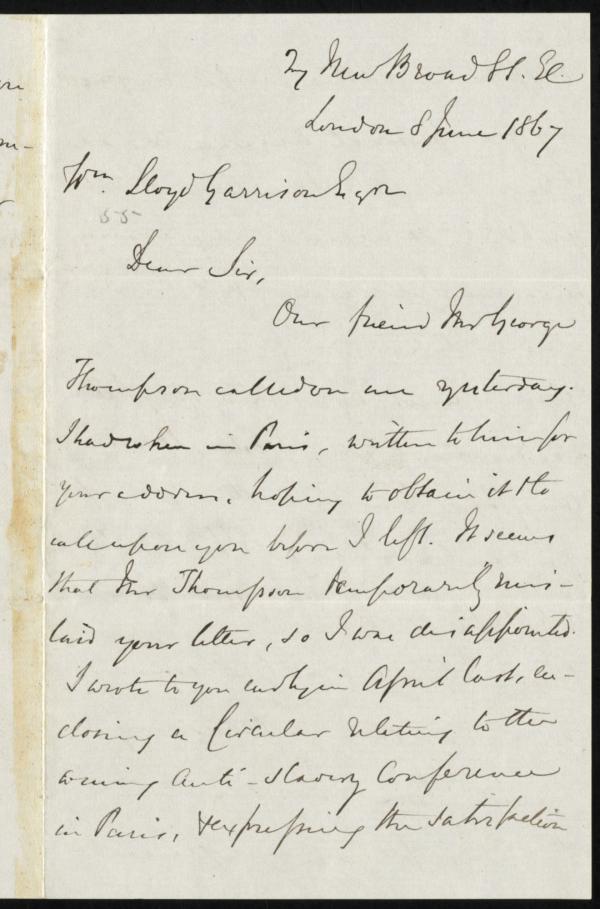 27 New Broad St. Ec.
London 8 June 1867
Wm. Lloyd Garrison Esqre
55
Dear Sir,
Our friend Mr George
Thompson called on me yesterday.
I had when in Paris, written to him for
your address, hoping to obtain it & to
call upon you before I left. It seems
that Mr Thompson temporarily mis-
laid your letter, so I was disappointed.
I wrote to you early in April last, en-
closing a Circular relating to the
coming Anti-Slavery Conference
in Paris, & expressing the satisfaction